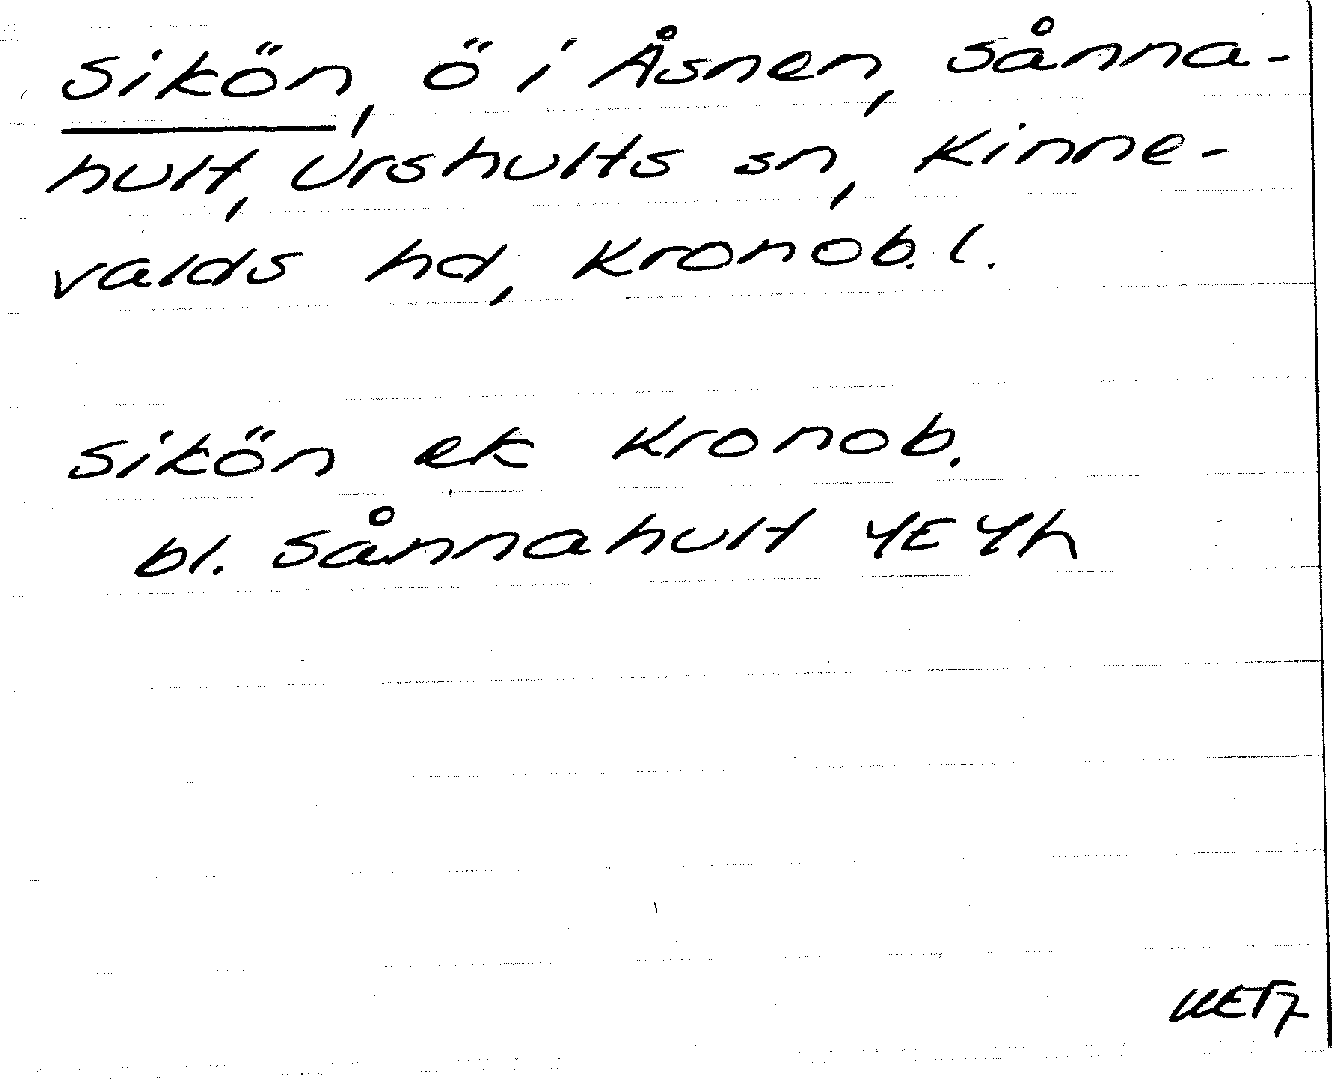 Sikön, ö i Åsnen, Sånna-
hult, Urshults sn, Kinne-
valds hd, Kronob. l.
Sikön ek Kronob.
bl. Sånnahult 4E4h